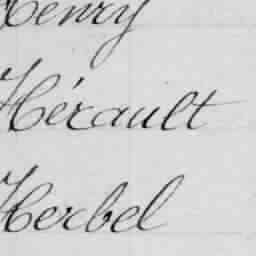 Henry
Hérault
Herbel